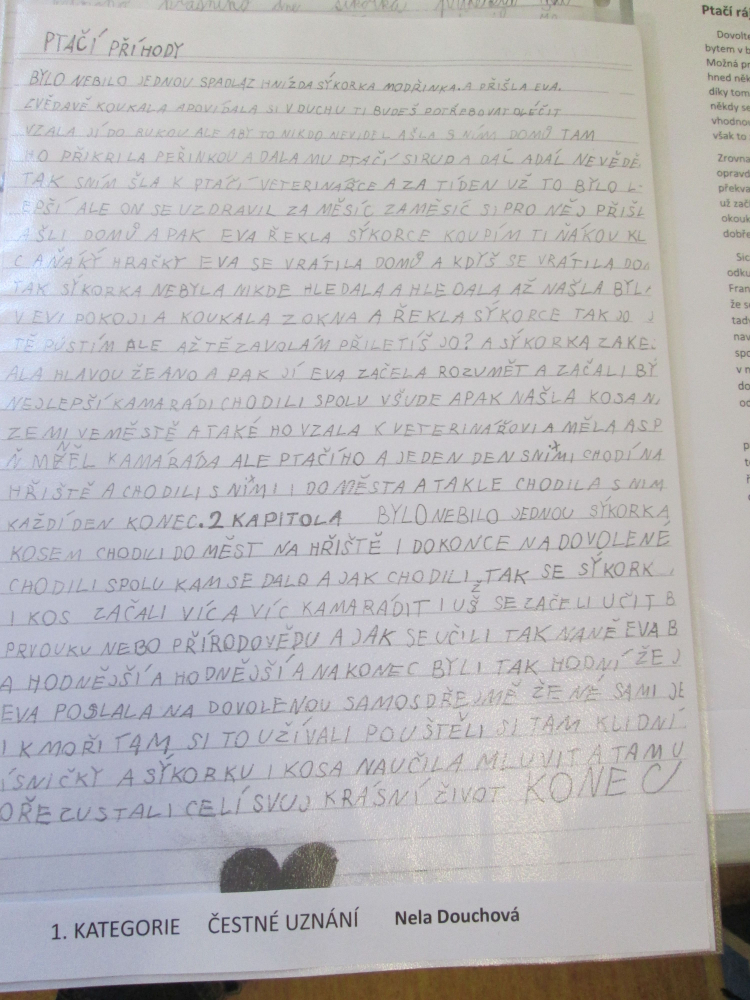 PTAČÍ PŘÍHODY
BYLO NEBILO JEDNOU SPADLA Z HNÍZDA SÝKORKA MODŘINKA. A PŘIŠLA EVA.
ZVĚDAVĚ KOUKALA A POVÍDALA SI V DUCHU TI BUDEŠ POTŘEBOVAT OLÉČIT
VZALA JÍ DO RUKOU ALE ABY TO NIKDO NEVIDEL A ŠLA S NÍM DOMŮ TAM
HO PŘIKRILA PEŘINKOU A DALA MU PTAČÍ SIRUP A DÁL ADÁL NEVĚDĚ
TAK SNÍM ŠLA K PTAČÍ VETERINAŘCE A ZA TÍDEN UŽ TO BYLO L
EPŠÍ ALE ON SE UZDRAVIL ZA MĚSÍC ZAMĚSÍC SI PRO NĚJ PŘIŠL
A ŠLI DOMŮ A PAK EVA ŘEKLA SÝKORCE KOUPÍM TI ŇÁKOU KL
C A ŇÁKÝ HRAČKY EVA SE VRÁTILA DOMŮ A KDYŠ SE VRÁTILA DOM
TAK SÝKORKA NEBYLA NIKDE HLEDALA A HLEDALA AŽ NAŠLA BYL
V EVI POKOJI A KOUKALA Z OKNA A ŘEKLA SÝKORCE TAK JO J
TĚ PUSTÍM ALE AŽ TĚ ZAVOLÁM PŘILETÍŠ JO? A SÝKORKA ZAKE
ALA HLAVOU ŽE ANO A PAK JÍ EVA ZAČELA ROZUMĚT A ZAČALI BÝ
NEJLEPŠÍ KAMARÁDI CHODILI SPOLU VŠUDE A PAK NAŠLA KOSA N
ZEMI VE MĚSTĚ A TAKÉ HO VZALA K VETERINAŘOVI A MĚLA ASP
Ň MĚL KAMARÁDA ALE PTAČÍHO A JEDEN DEN SNÍMI CHODÍ NA
HŘIŠTĚ A CHODILI S NÍMI I DO MĚSTA A TAKLE CHODILA S NIM
KAŽDÍ DEN KONEC. 2 KAPITOLA BYLO NEBILO JEDNOU SÝKORKA
KOSEM CHODILI DO MĚST NA HŘIŠTĚ I DOKONCE NA DOVOLENÉ
CHODILI SPOLU KAM SE DALO A JAK CHODILI, TAK SE SÝKORK
I KOS ZAČALI VÍC A VÍC KAMARÁDIT I UŽ SE ZAČELI UČIT B
PRVOUKU NEBO PŘÍRODOVĚDU A JAK SE UČILI TAK NANĚ EVA B
A HODNĚJŠÍ A HODNĚJŠÍ A NAKONEC BYLI TAK HODNÍ ŽE J
EVA POSLALA NA DOVOLENOU SAMOSDŘEJMĚ ŽE NÉ SAMI JE
I K MOŘI TAM SI TO UŽÍVALI POUŠTĚLI SI TAM KLIDNÍ
ÍSNIČKY A SÝKORKU I KOSA NAUČILA MLUVIT A TAM U
OŘE ZUSTALI CELÍ SVUJ KRÁSNÍ ŽIVOT KONEC
1. KATEGORIE ČESTNÉ UZNÁNÍ Nela Douchová
Ptačí ráj
Dovolte
bytem v b
Možná pr
hned něk
díky tom
někdy se
vhodnou
však to
Zrovna
opravd
překva
už zač
okouk
dobře
odku
Fran
že s